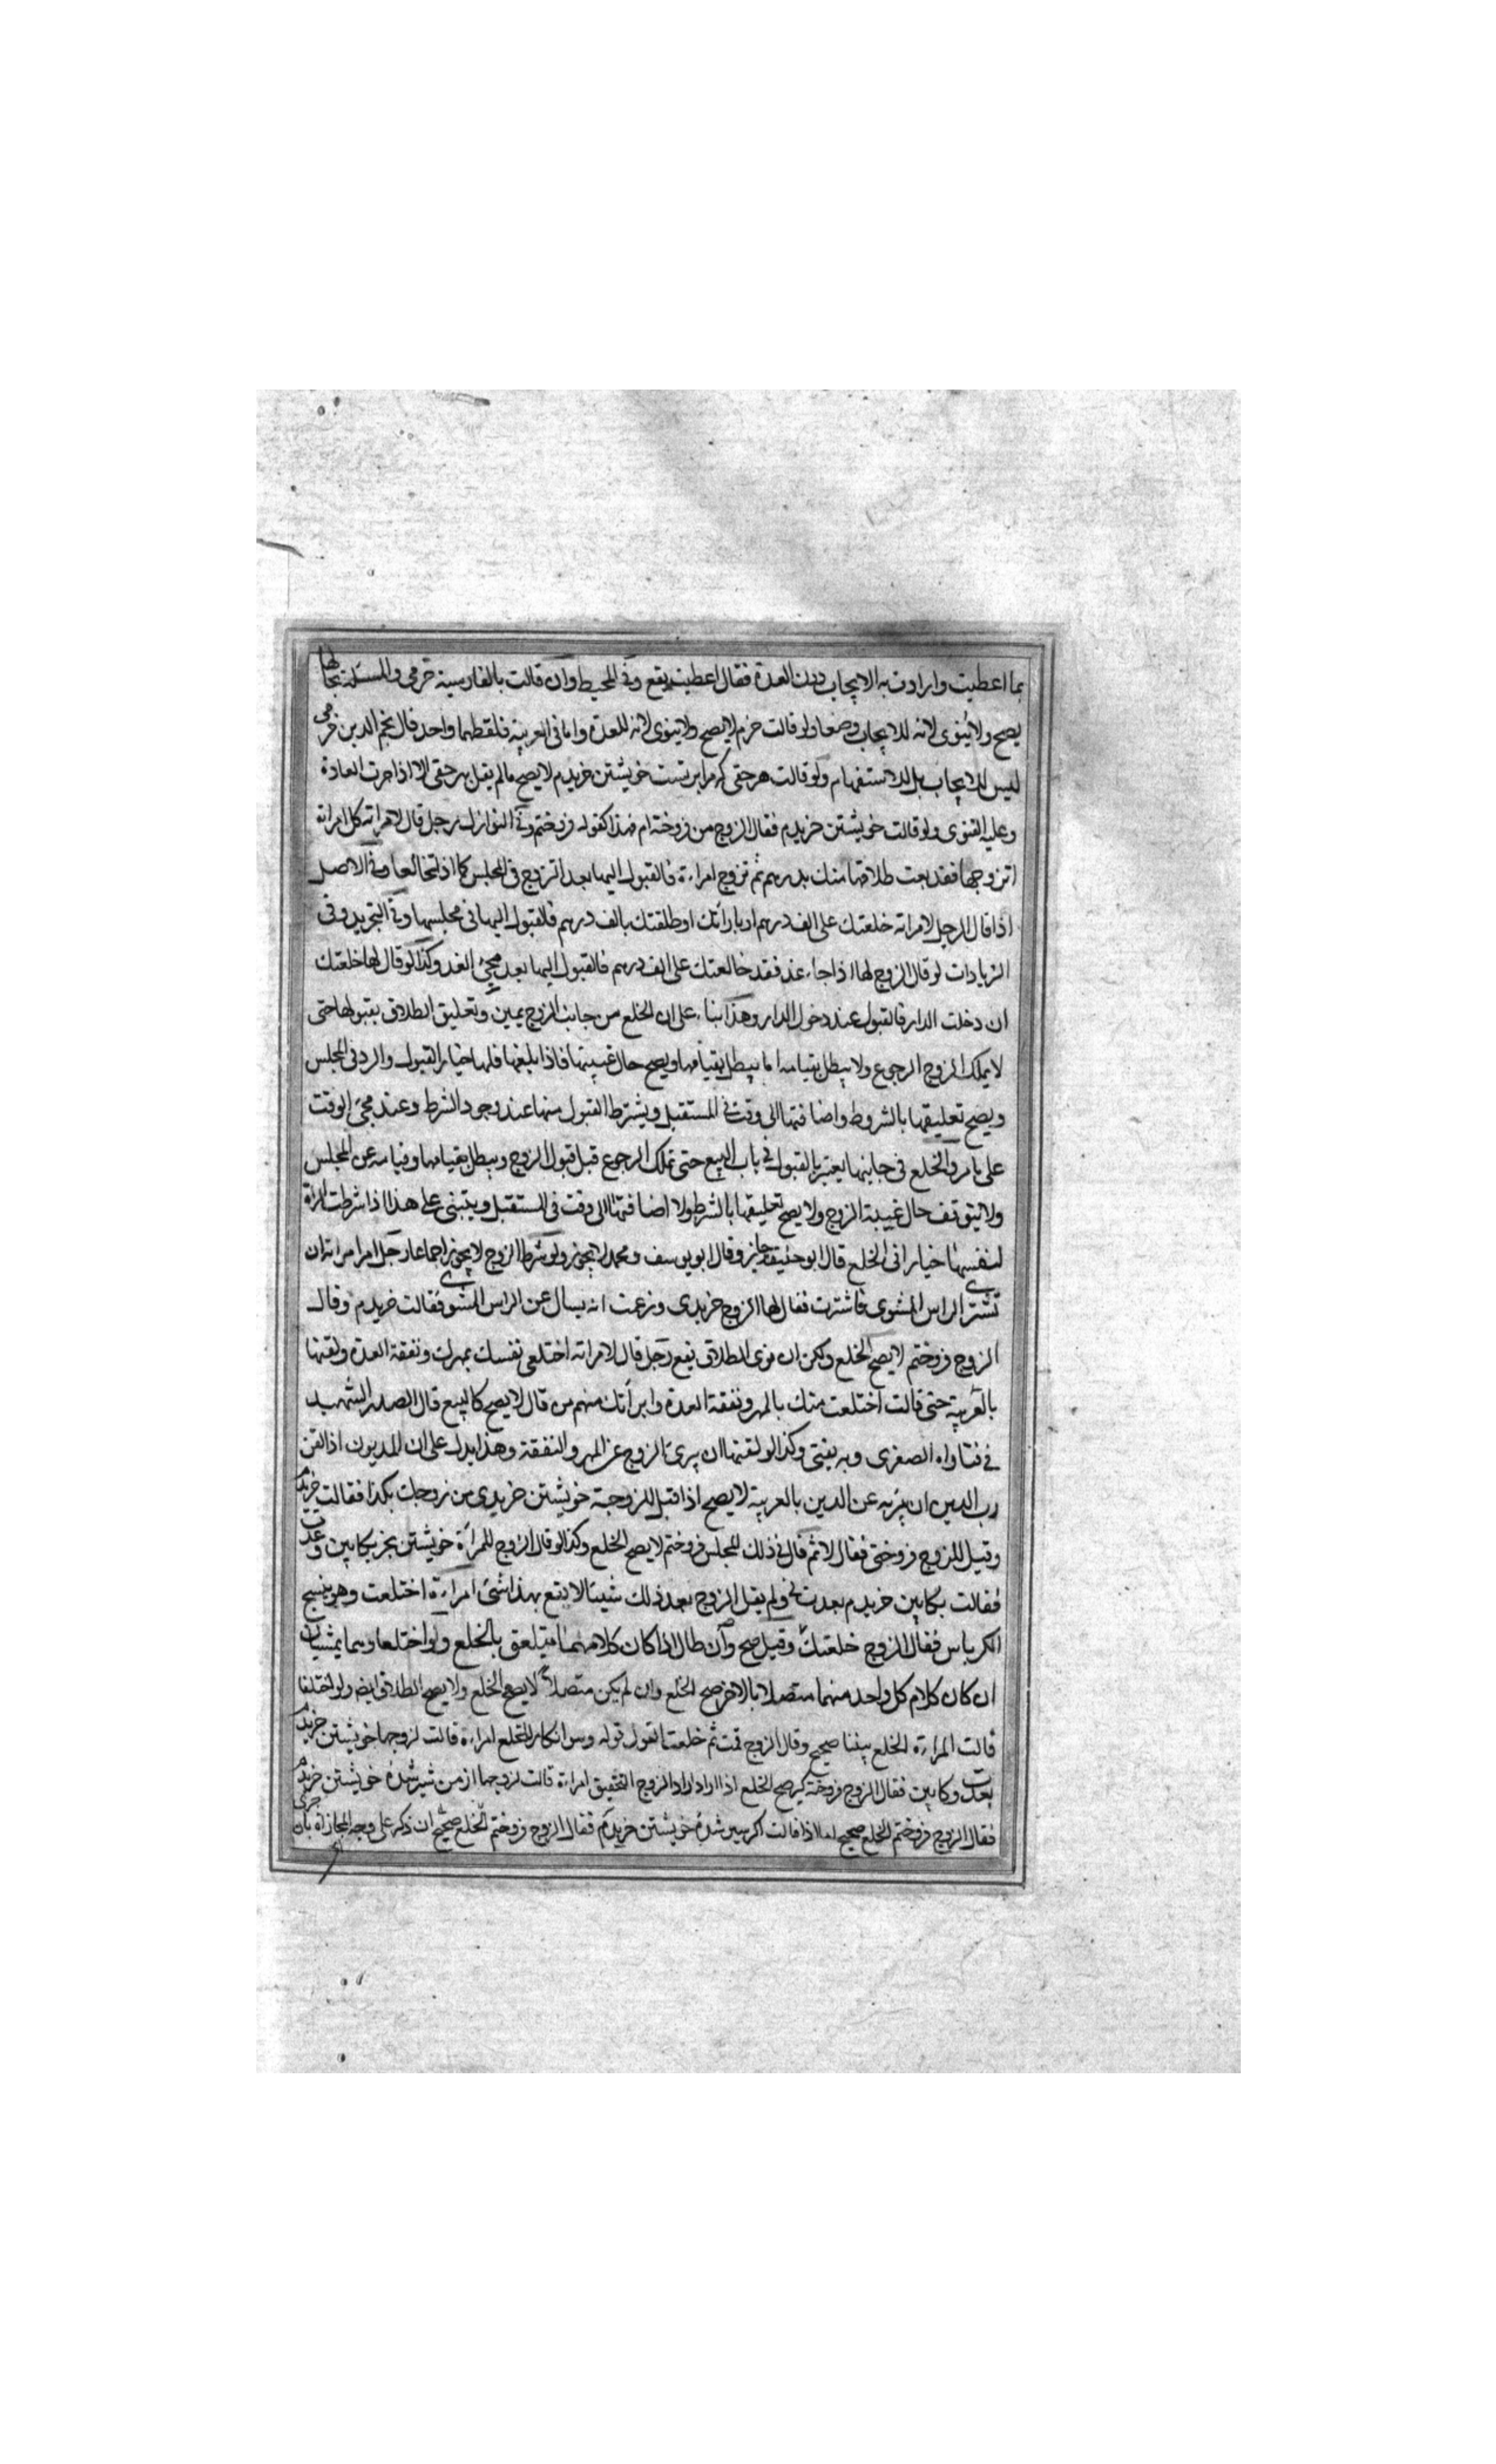 بما اعطيت وارادت به الايجاب دون العدة فقال اعطيت يقع وفى المحيط وان قالت بالفارسية خرمى والمسئلة بحالها
يصح ولا ينوى لانه للايجاب وضعا ولو قالت خرم لا يصح ولا ينوى لانه للعدة واما فى العربية فلفظهما واحد قال نجم الدين خرمى
ليس للايجاب بل للاستفهام ولو قالت هرحقى كه مرا برتست خويشتن خريدم لا يصح مالم يقل بهر حقى الا اذا جرت العادة
وعليه الفتوى ولو قالت خويشتن خريدم فقال الزوج من فروخته ام فهذا كقوله فروختم وفى النوازل رجل قال لامراته كل امراة
اتزوجها فقد بعت طلاقها منك بدرهم ثم تزوج امراءة فالقبول اليها بعد التزوج فى المجلس كما اذا تخالعا وفى الاصل
اذا قال الرجل لامراته خلعتك على الف درهم او بارأتك او طلقتك بالف درهم فالقبول اليها فى مجلسها وفى التجريد وفى
الزيادات لو قال الزوج لها اذا جاء غد فقد خالعتك على الف درهم فالقبول اليها بعد مجئ الغد وكذا لو قال لها خلعتك
ان دخلت الدار فالقبول عند دخول الدار وهذا بناء على ان الخلع من جانب الزوج يمين وتعليق الطلاق بقبولها حتى
لا يملك الزوج الرجوع ولا يبطل بقيامه اما يبطل بقيامها ويصح حال غيبتها فاذا بلغها فلها خيار القبول والرد فى المجلس
ويصح تعليقها بالشروط واضافتها الى وقت فى المستقبل ويشترط القبول منها عند وجود الشرط وعند مجئ الوقت
على مامر والخلع فى جانبها يعتبر بالقبول فى باب البيع حتى تملك الرجوع قبل قبول الزوج ويبطل بقيامها وقيامه عن المجلس
ولا تيتوقف حال غيبة الزوج ولا يصح تعليقها بالشرط ولا اضافتها الى وقت فى المستقبل ويبتنى على هذا اذا شرطت المرأة
لنفسها خيارا فى الخلع قال ابو حنيفة جايز وقال ابو يوسف ومحمد لا يجوز ولو شرط الزوج لا يجوز اجماعا رجل امر امراته ان
تشترى الراس المشوى فاشترت فقال لها الزوج خريدى وزعمت انه يسال عن الراس المشوى فقالت خريدم وقال
الزوج فروختم لا يصح الخلع ولكن ان نوى الطلاق يقع رجل قال لامراته اختلعى نفسك بمهرك ونفقة العدة ولقنها
بالعربية حتى قالت اختلعت منك بالمهر ونفقة العدة وابرأتك منهم من قال لا يصح كالبيع قال الصدر الشهيد
فى فتاواه الصغرى وبه يفتى وكذا لو لقنها ان يبرئ الزوج عن المهر والنفقة وهذا يدل على ان المديون اذا لقن
رب الدين ان يبرئه عن الدين بالعربية لا يصح اذا قيل للزوجة خويشتن خريدى من زوجك بكذا فقالت خريدم
وقيل للزوج فروختى فقال لا ثم قال فى ذلك المجلس فروختم لا يصح الخلع وكذا لو قال الزوج للمرأة خويشتن بخر بكابين وعدت
فقالت بكابين خريدم بعدت ولم يقل الزوج بعد ذلك شيئا لا يقع بهذا شئ امراءة اختلعت وهو ينسج
الكرباس فقال الزوج خلعتك وقيل صح وان طال اذا كان كلامهما يتعلق بالخلع ولو اختلعا وهما يمشيان
ان كان كلام كل واحد منهما متصلا بالاخر صح الخلع وان لم يكن متصلا لا يصح الخلع ولا يصح الطلاق ايضا ولو اختلفا
قالت المراءة الخلع بيننا صحيح وقال الزوج قمت ثم خلعت القول قوله وهو انكار للخلع امراءة قالت لزوجها خويشتن خريدم
بعدت وكابين فقال الزوج فروخته كير صح الخلع اذا اراد الزوج التحقيق امراءة قالت لزوجها از من سير شده خويشتن خريدم
فقال الزوج فروختم الخلع صحيح اما اذا قالت اكر سير شده خويشتن خريدم فقال الزوج فروختم الخلع صحيح ان ذكر على وجه المجازاة بان